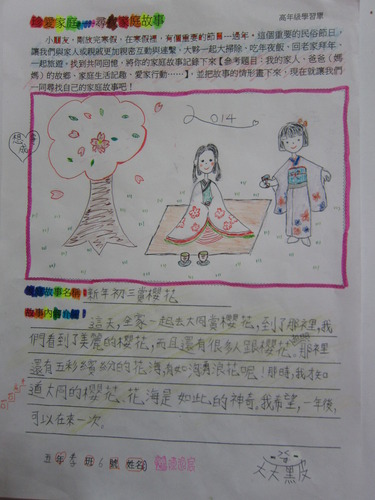 愛家庭 尋 家庭故事
高年級學習單
小朋友,剛放完寒假,在寒假裡,有個重要的節日-過年,這個重要的民俗節日,
讓我們與家人或親戚更加親密互動與連繫。大夥一起大掃除、吃年夜飯、回老家拜年、
一起旅遊,找到共同回憶,將你的家庭故事記錄下來【參考題目:我的家人、爸爸(媽
媽)的故鄉、家庭生活記趣、愛家行動……】,並把故事的情形畫下來,現在就讓我們
一同尋找自己的家庭故事吧!
2014
故事名稱:新年初三賞櫻花
故事內容介紹:
這天,全家一起去大同賞櫻花,到了那裡,我
們看到了美麗的櫻花,而且還有很多人跟櫻花,那裡
還有五彩繽紛的花海,有如海洋浪花呢!那時,我才知
道大同的櫻花、花海是如此的神奇。我希望,一年後,
可以在來一次。
五年孝班6號 姓名
天天黑皮